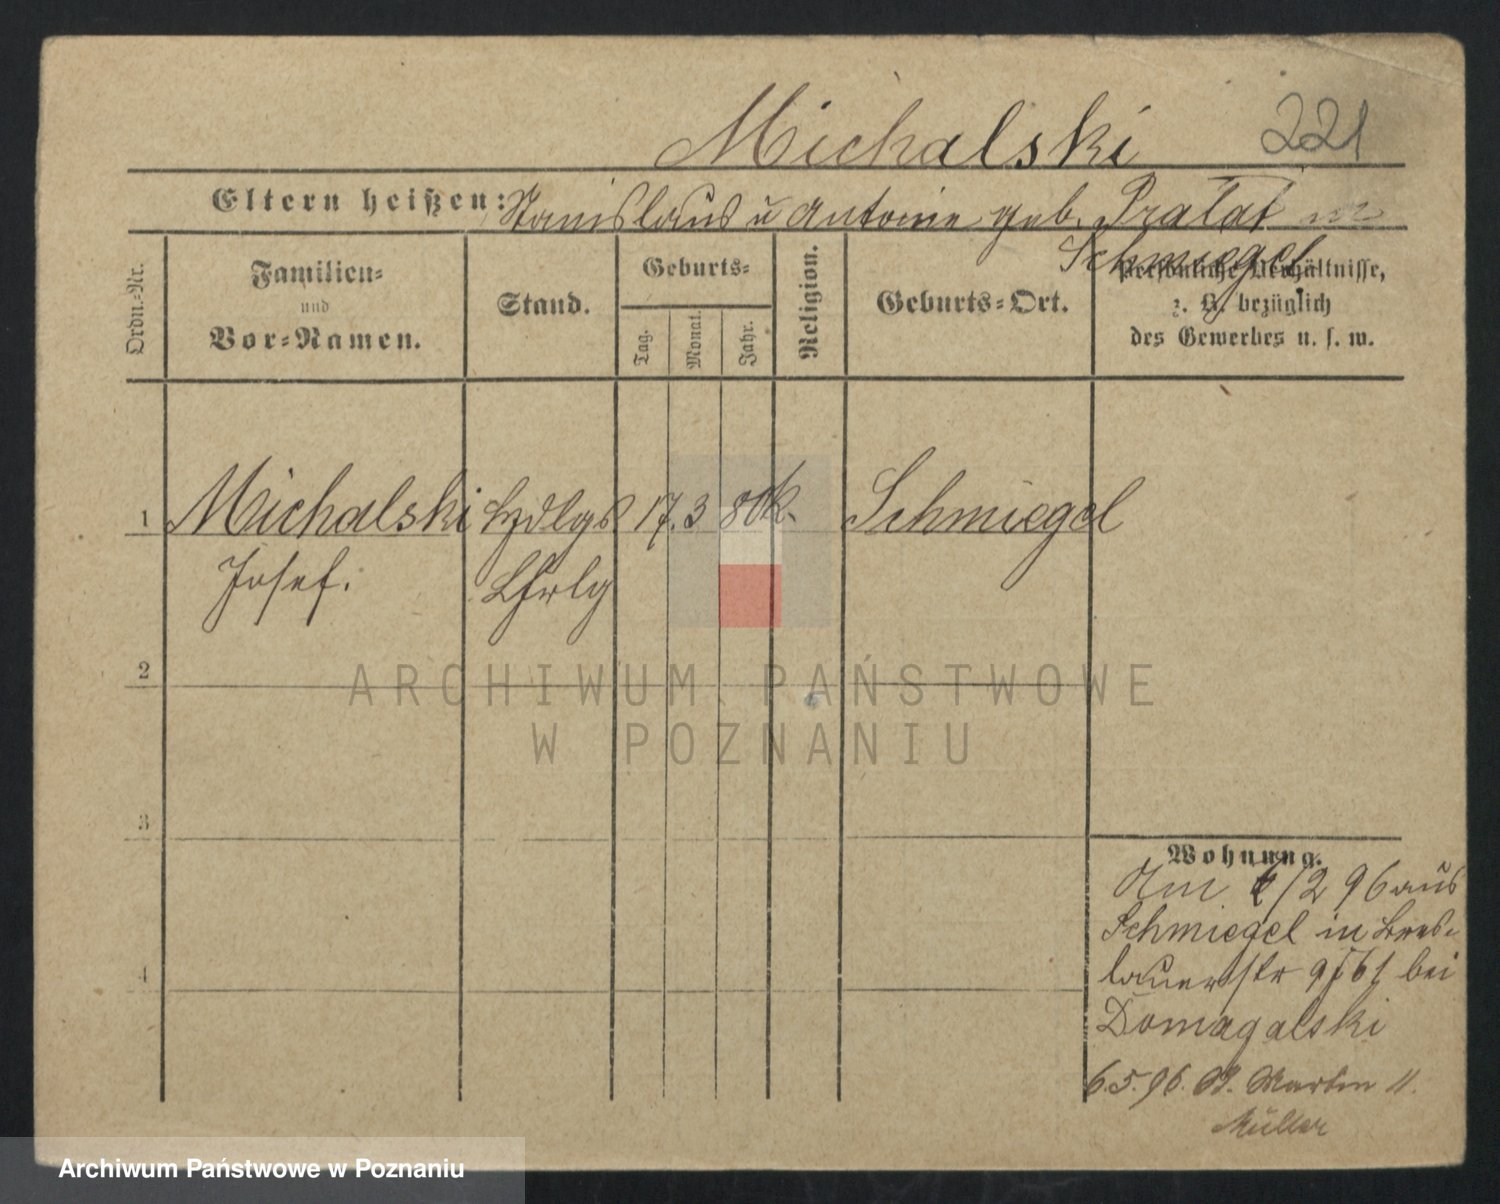 Michalski 221
Eltern heißen: Stanislaus u Antonie geb. Pralat in
Schmiegel
Ordn.-Nr.
Familien-
und
Vor-Namen.
Stand.
Geburts-
Tag.
Monat.
Jahr.
Religion.
Geburts-Ort.
Persönliche Verhältnisse,
z. B. bezüglich
des Gewerbes u. s. w.
1 Michalski Hzdlgs 17. 3 80 k. Schmiegel
Josef. Lhrlg
2
3
4
Wohnung.
Am 6/2 96 aus
Schmiegel in Bres-
lauerstr 9/61 bei
Domagalski
6.5.96. St. Martin 11.
Müller
ARCHIWUM PAŃSTWOWE
W POZNANIU
Archiwum Państwowe w Poznaniu